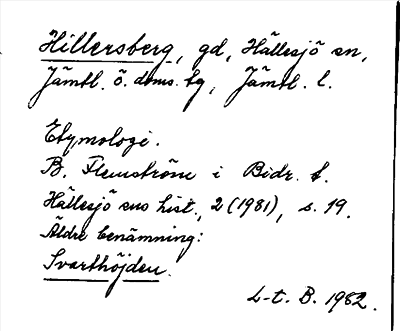 Hillersberg, gd, Hällesjö sn,
Jämtl. ö. doms. tg, Jämtl. l.
Etymologi.
B. Flemström i Bidr. t.
Hällesjö sns hist., 2 (1981), s. 19.
Äldre benämning:
Svarthöjden.
L-t. B. 1982.